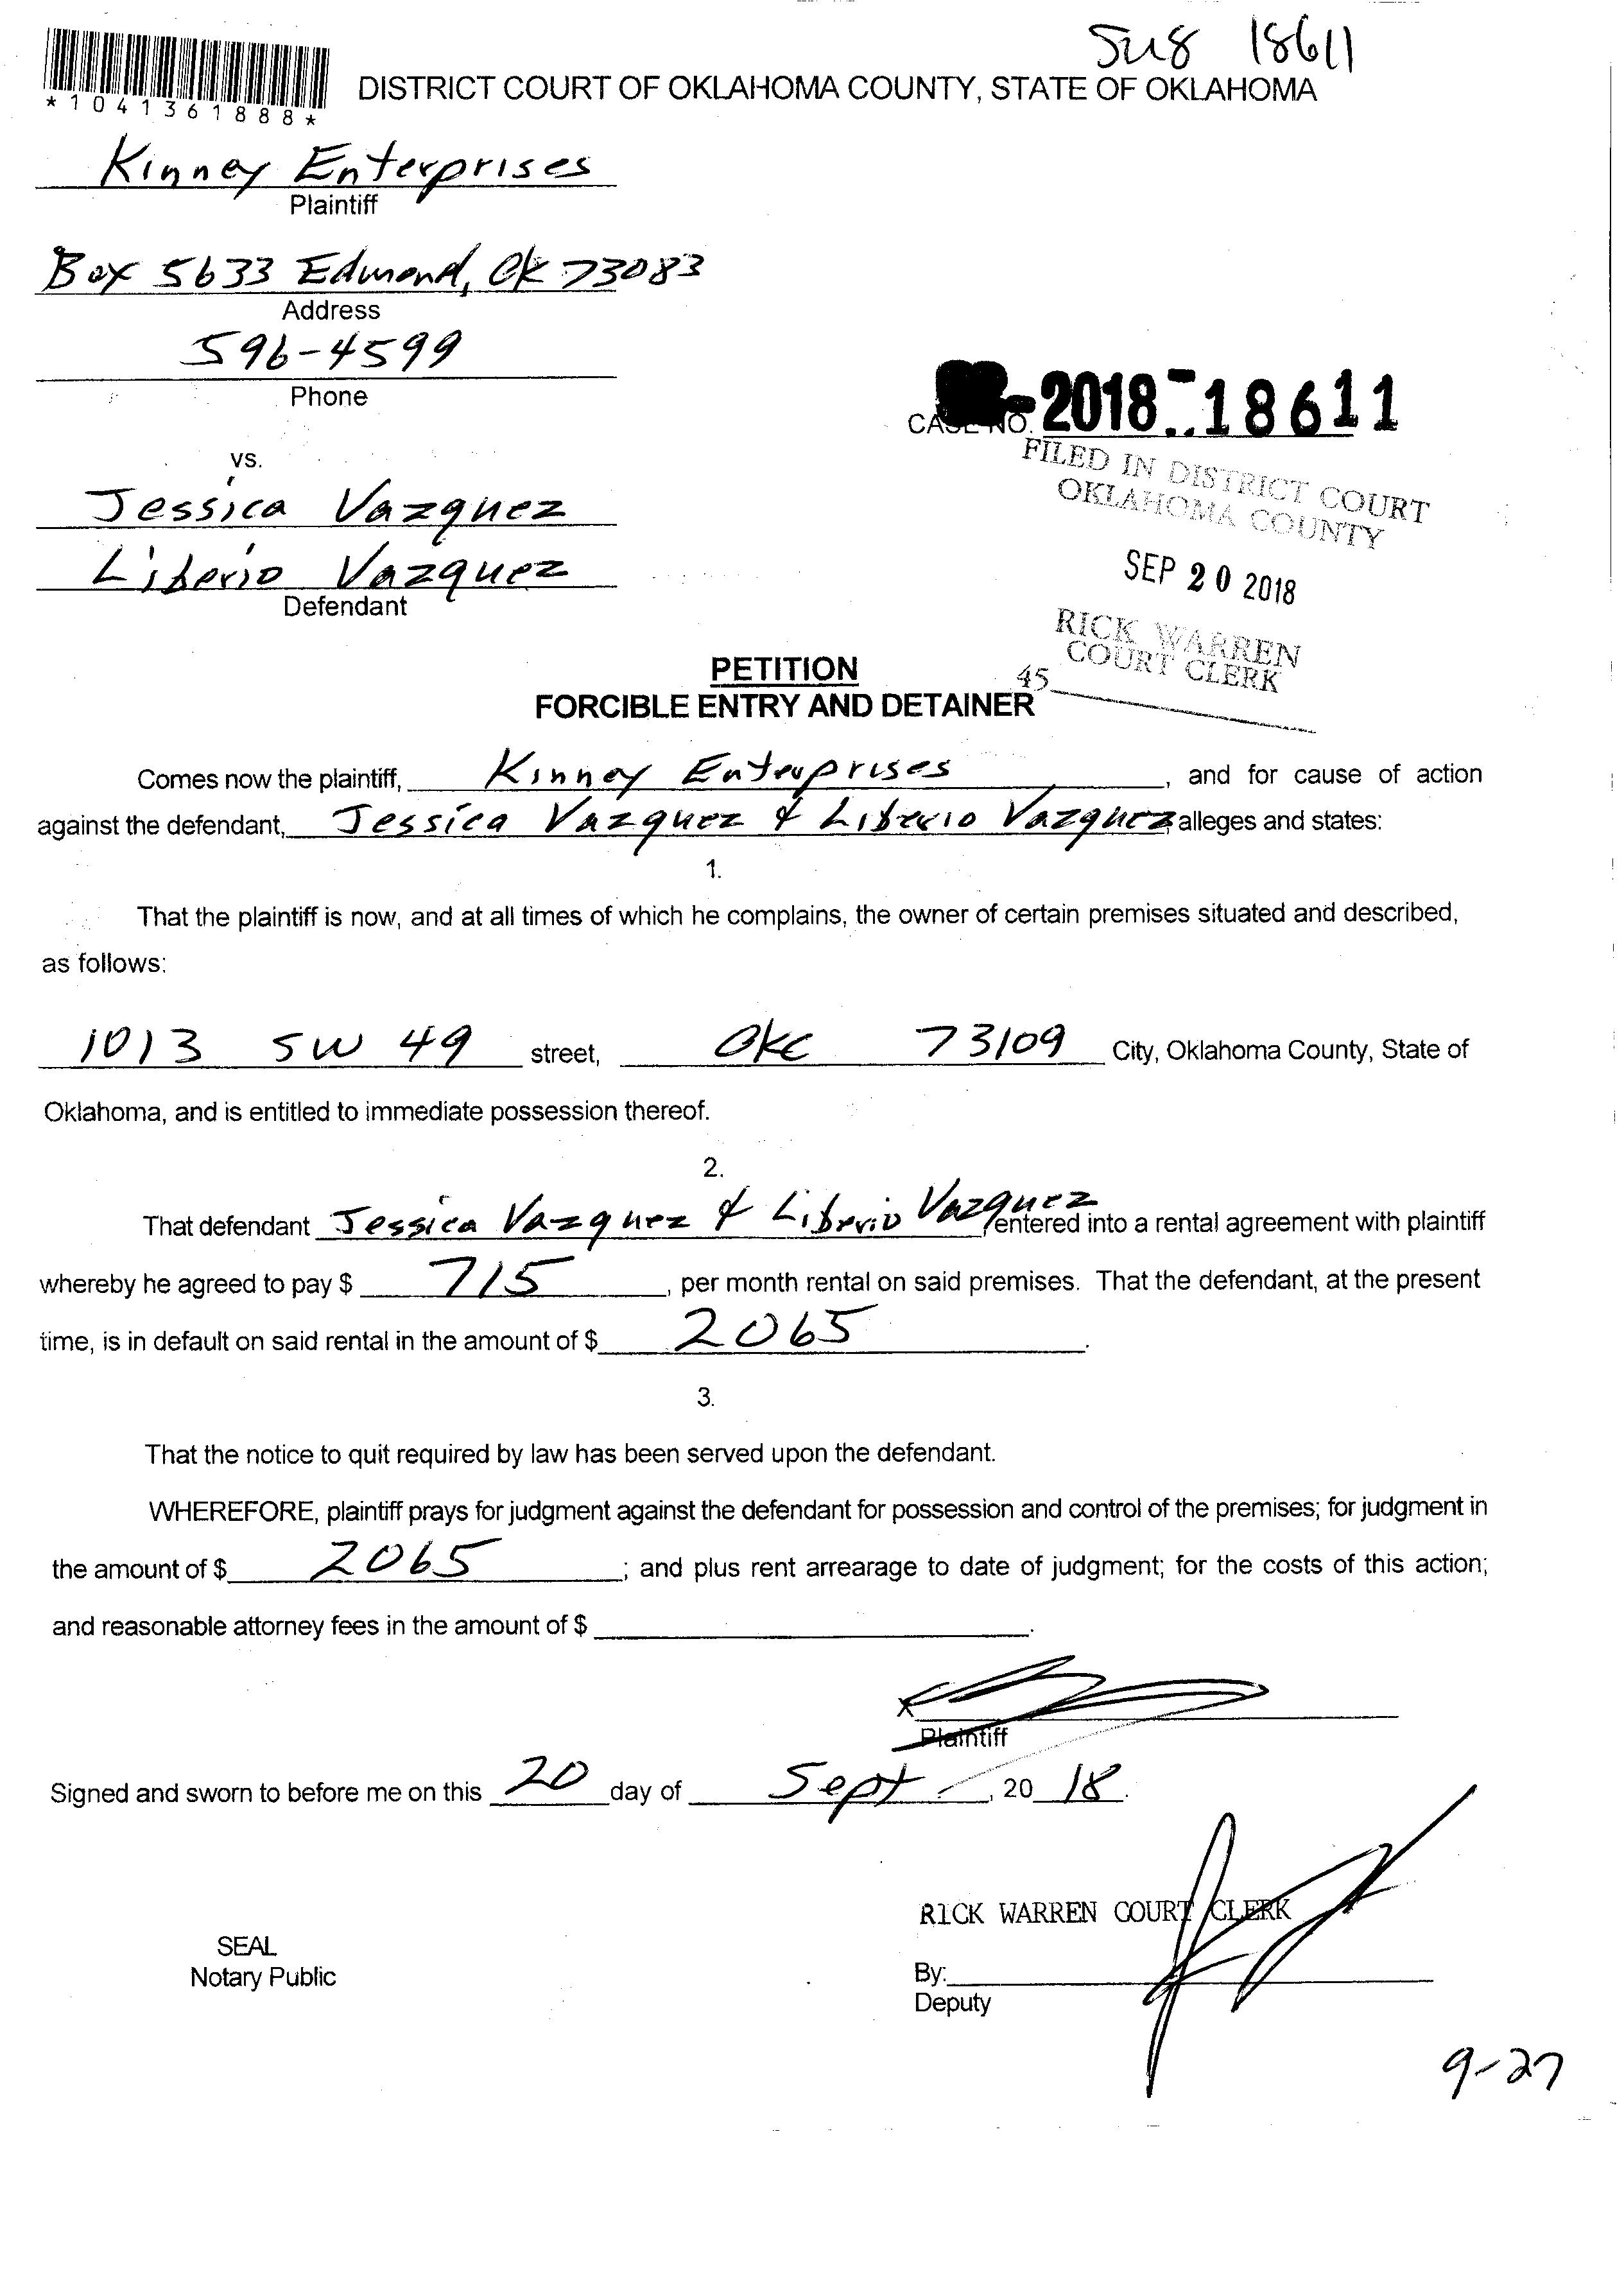 18611
DISTRICT COURT OF OKLAHOMA COUNTY, STATE OF OKLAHOMA
*1041361888*
Kinney Enterprises
Plaintiff
Box 5633 Edmond, OK 73083
Address
596-4599
Phone
CASE NO. -2018-18611
FILED IN DISTRICT COURT
OKLAHOMA COUNTY
vs.
Jessica Vazquez
Liberio Vazquez
Defendant
SEP 20 2018
RICK WARREN
COURT CLERK
45
PETITION
FORCIBLE ENTRY AND DETAINER
Comes now the plaintiff, Kinney Enterprises, and for cause of action
against the defendant, Jessica Vazquez & Liberio Vazquez alleges and states:
1.
That the plaintiff is now, and at all times of which he complains, the owner of certain premises situated and described,
as follows:
1013 SW 49 street, OKC 73109 City, Oklahoma County, State of
Oklahoma, and is entitled to immediate possession thereof.
2.
That defendant Jessica Vazquez & Liberio Vazquez, entered into a rental agreement with plaintiff
whereby he agreed to pay $ 715, per month rental on said premises. That the defendant, at the present
time, is in default on said rental in the amount of $ 2065.
3.
That the notice to quit required by law has been served upon the defendant.
WHEREFORE, plaintiff prays for judgment against the defendant for possession and control of the premises; for judgment in
the amount of $ 2065; and plus rent arrearage to date of judgment; for the costs of this action;
and reasonable attorney fees in the amount of $ .
x
Plaintiff
Signed and sworn to before me on this 20 day of Sept, 20 18.
RICK WARREN COURT CLERK
SEAL
Notary Public
By:
Deputy
9-27